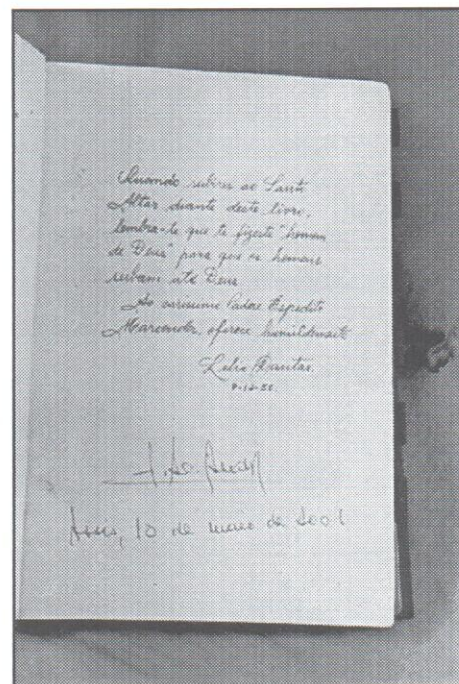 Quando subires ao Santo
Altar diante deste livro,
lembra-te que te fizeste "homem
de Deus" para que os homens
subam até Deus
Ao caríssimo Padre Expedito
Marcondes, oferece humildemente
Lelis Dantas.
10 de de 2001